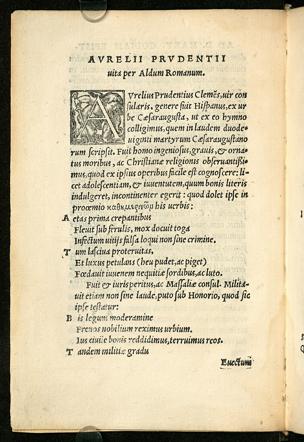 AVRELII PRVDENTII
uita per Aldum Romanum.
AVrelius Prudentius Clemēs, uir con
sularis, genere fuit Hispanus, ex ur
be Cæsaraugusta, ut ex eo hymno
colligimus, quem in laudem duode‑
uiginti martyrum Cæsaraugustano
rum scripsit. Fuit homo ingeniosus, grauis, & orna
tus moribus, ac Christianæ religionis obseruantissi‑
mus, quod ex ipsius operibus facile est cognoscere: li‑
cet adolescentiam, & iuuentutem, quum bonis literis
indulgeret, incontinenter egerit: quod dolet ipse in
proœmio his uersbus:
A etas prima crepantibus
Fleuit sub ferulis, mox docuit toga
Infectum uitijs falsa loqui non sine crimine.
T um lasciua proteruitas,
Et luxus petulans (heu pudet, ac piget)
Fœdauit iuuenem nequitiæ sordibus, ac luto.
Fuit & iuris peritus, ac Massaliæ consul. Milita‑
uit etiam non sine laude, puto sub Honorio, quod sic
ipse testatur:
B is legum moderamine
Frenos nobilium reximus urbium.
Ius ciuile bonis reddidimus, terruimus reos.
T andem militiæ gradu
Euectum